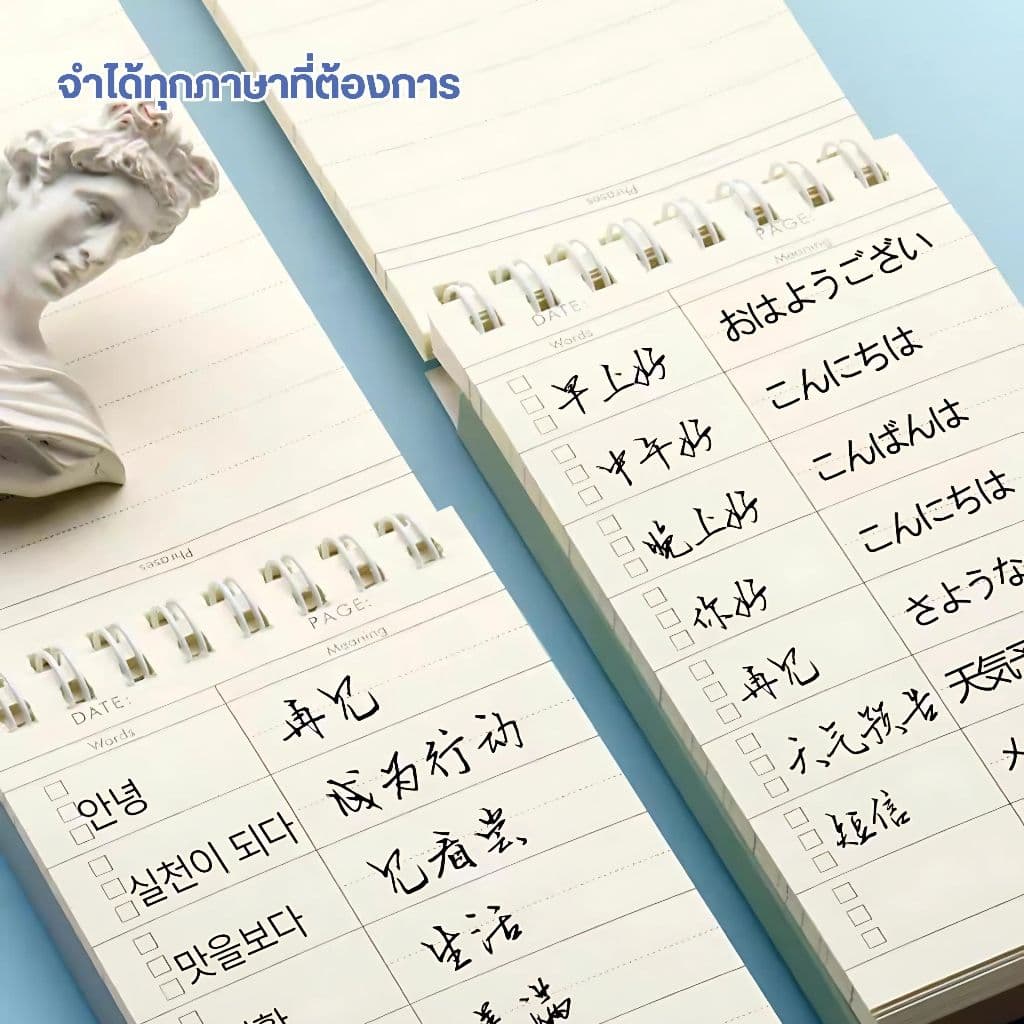 จำได้ทุกภาษาที่ต้องการ
Phrases
PAGE:
DATE:
Meaning
Words
早上好 おはようござい
中午好 こんにちは
晚上好 こんばんは
你好 こんにちは
再见 さような
天气预告 天気予
短信
Phrases
PAGE:
DATE:
Meaning
Words
안녕 再见
실천이 되다 成为行动
맛을보다 见看尝
生活